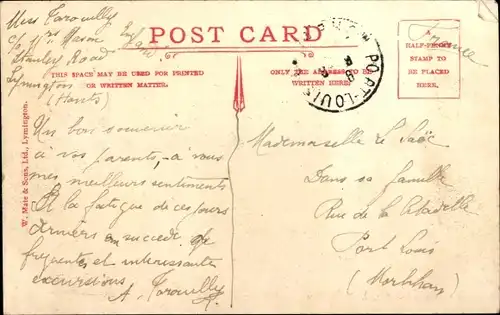 Miss Tarouilly
c/o Mrs Mason
England
Stanley Road
Lymington
(Hants)
POST CARD
THIS SPACE MAY BE USED FOR PRINTED
OR WRITTEN MATTER.
ONLY THE ADDRESS TO BE
WRITTEN HERE.
A
HALF-PENNY
STAMP TO
BE PLACED
HERE.
France
PORT-LOUIS
W. Mate & Sons, Ltd., Lymington.
Un bon souvenir
à vos parents, à vous
mes meilleurs sentiments
Et la fatigue de ces jours
derniers on succède de
fréquentes et intéressante
excursions
A. Tarouilly
Mademoiselle Le
Dans sa famille
Rue de la Citadelle
Port Louis
(Morbihan)